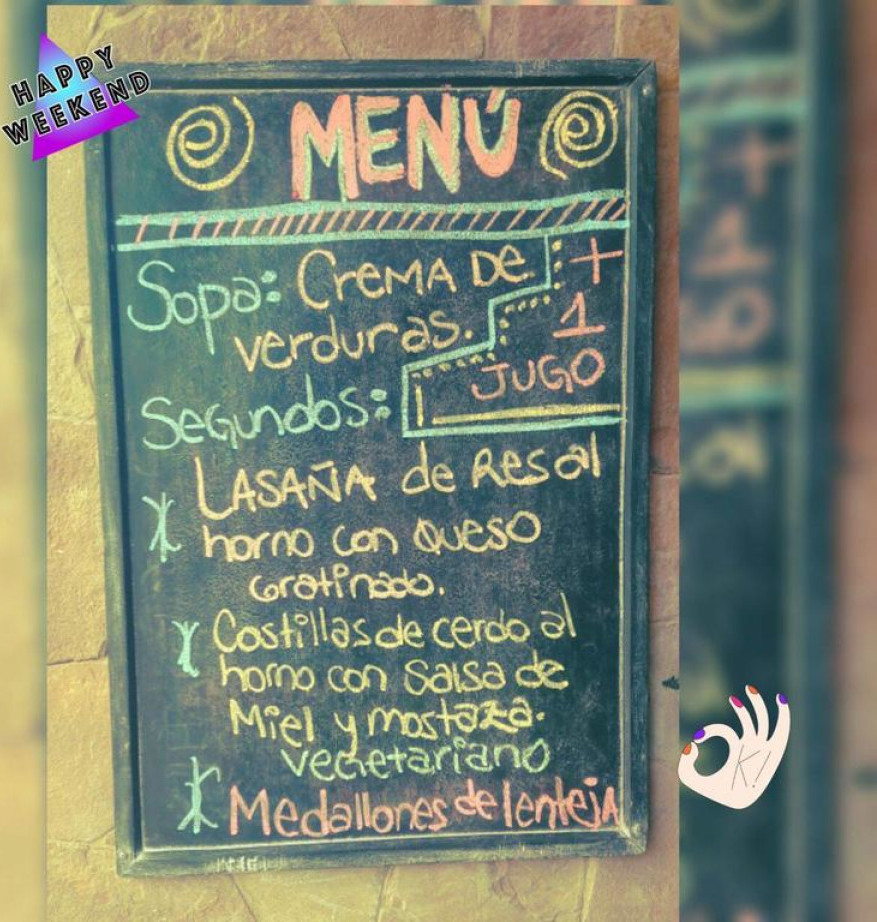 HAPPY
WEEKEND
MENÚ
Sopa: CREMA DE
verduras.
+
1
JUGO
Segundos:
LASAÑA de Res al
horno con Queso
Gratinado.
Costillas de cerdo al
horno con Salsa de
Miel y mostaza.
vegetariano
Medallones de lenteja
OK!